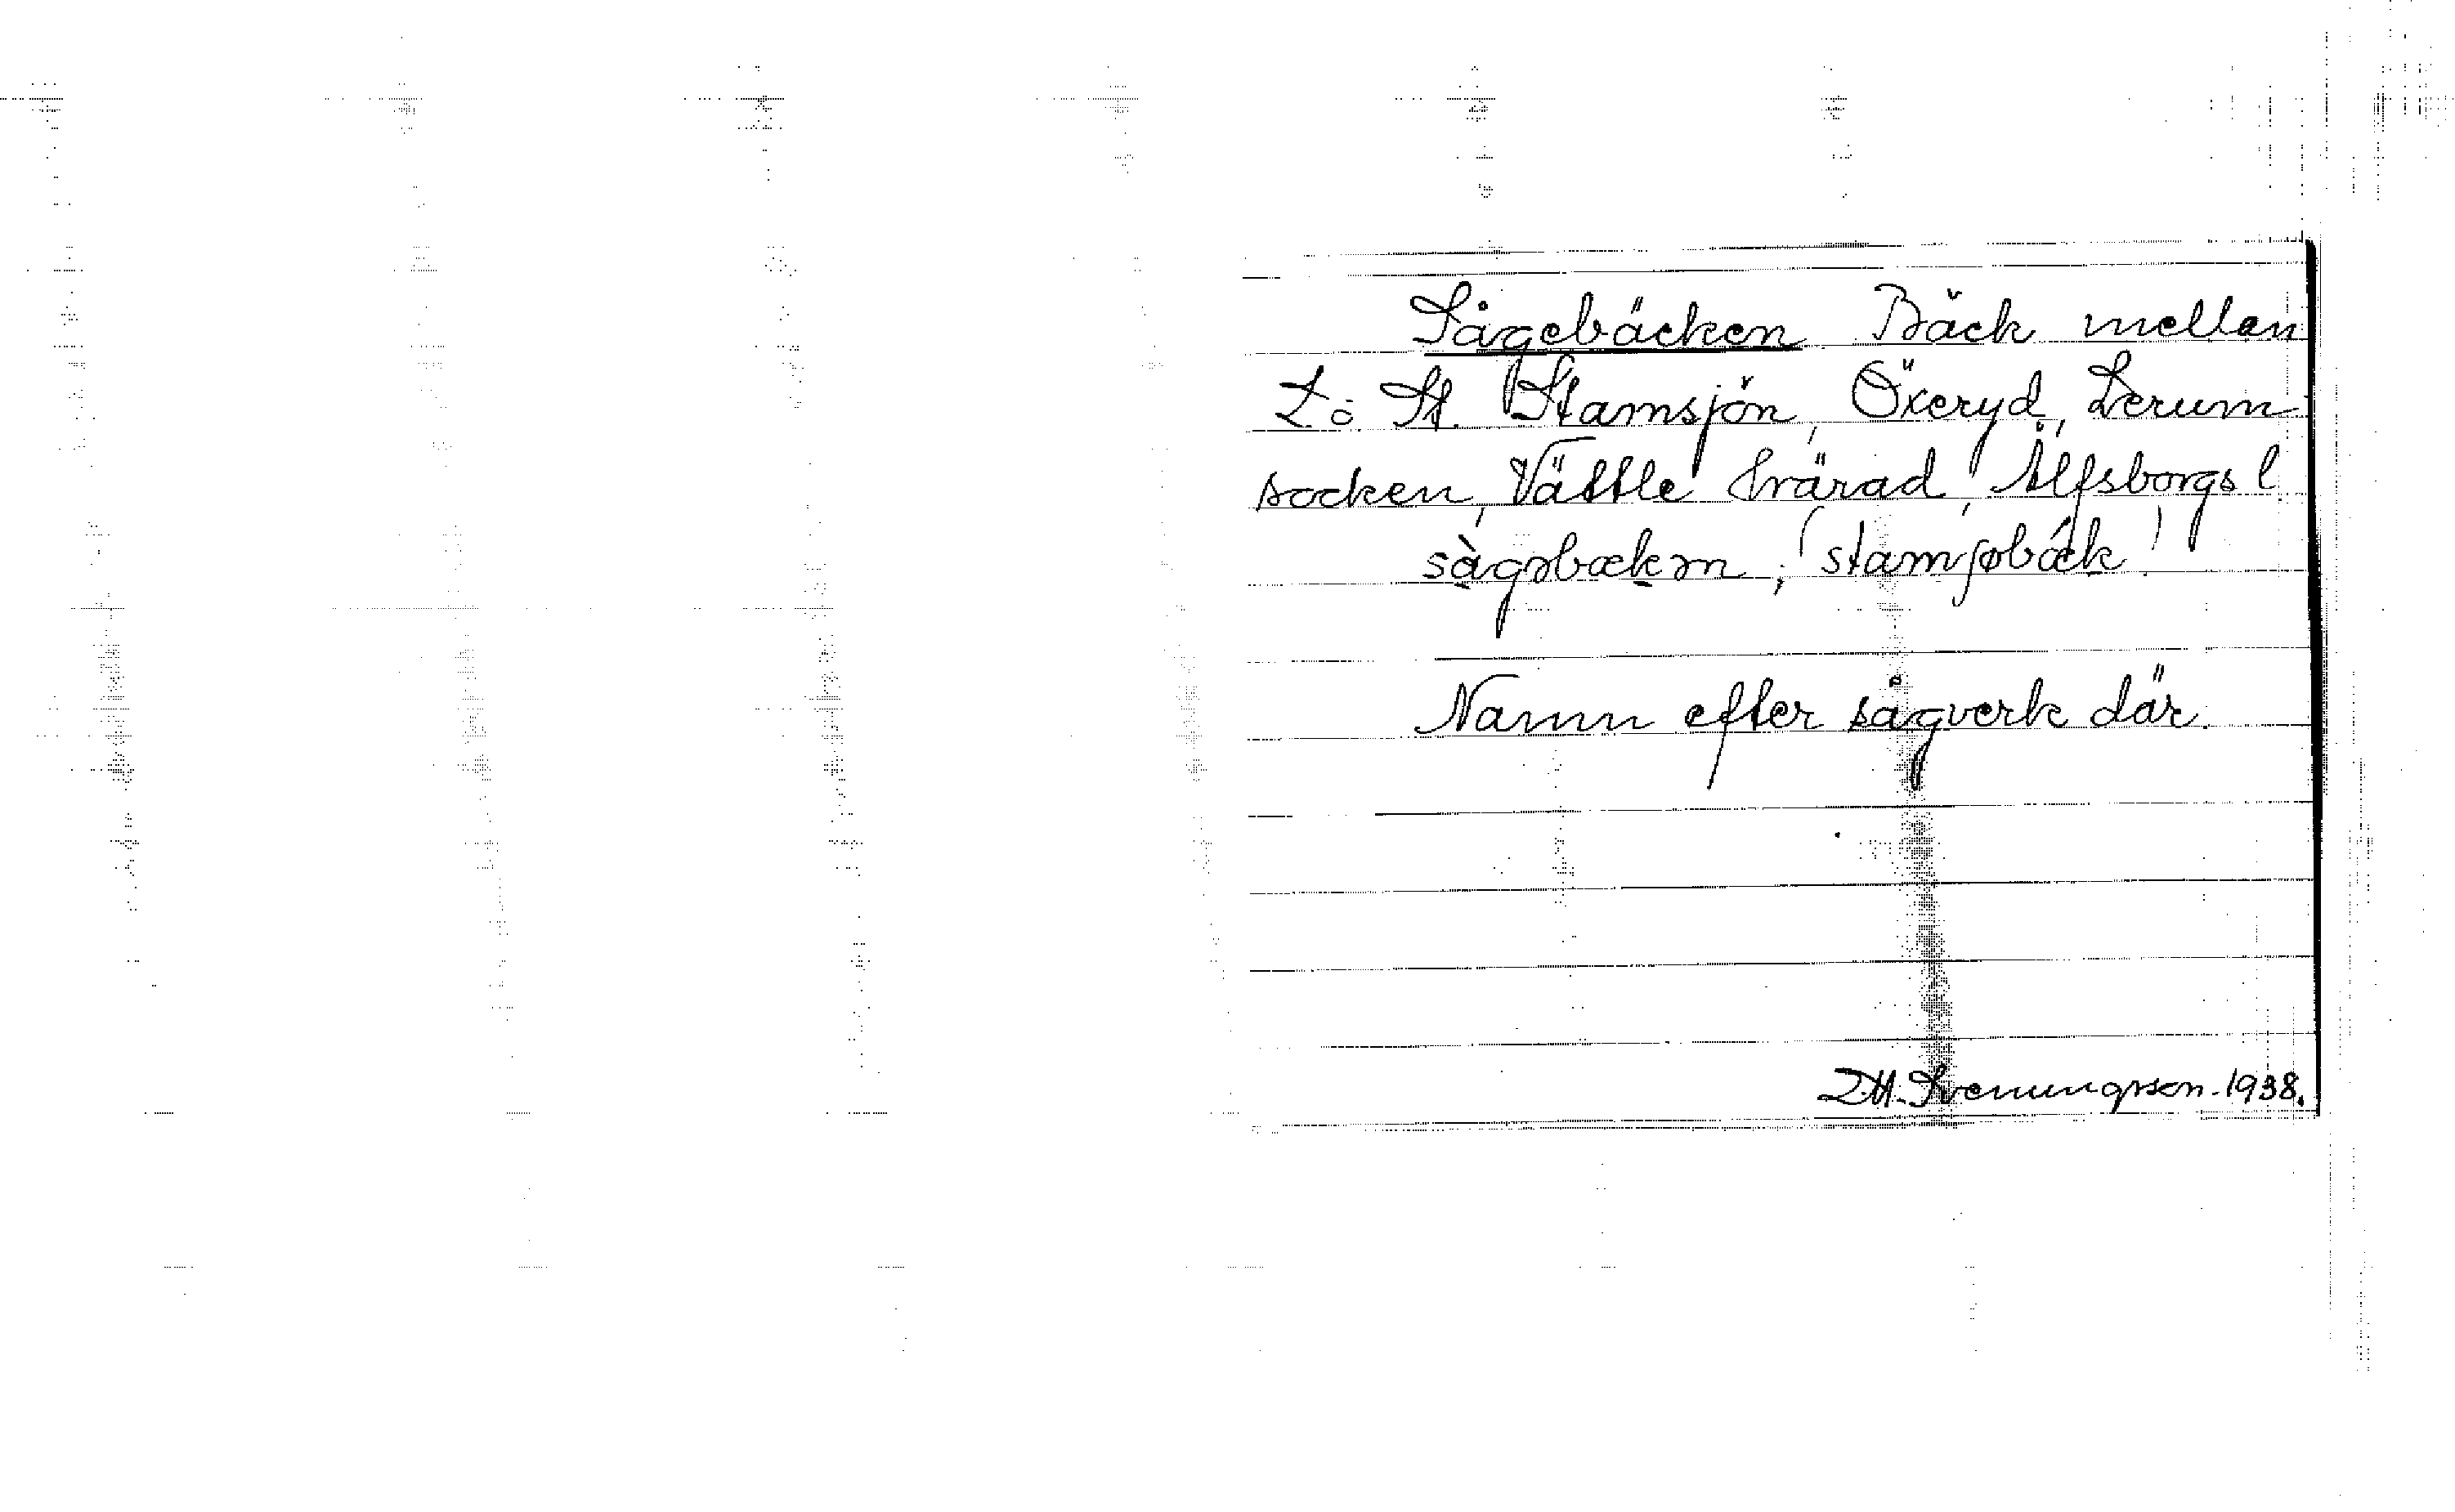 Sågebäcken Bäck mellan
L. o. St. Stamsjön, Öxeryd, Lerum
socken, Vättle härad, Älfsborgs l.
sàgəbækən, (stamʃøbæk)
Namn efter sågverk där.
D.H. Svenungsson. 1938.